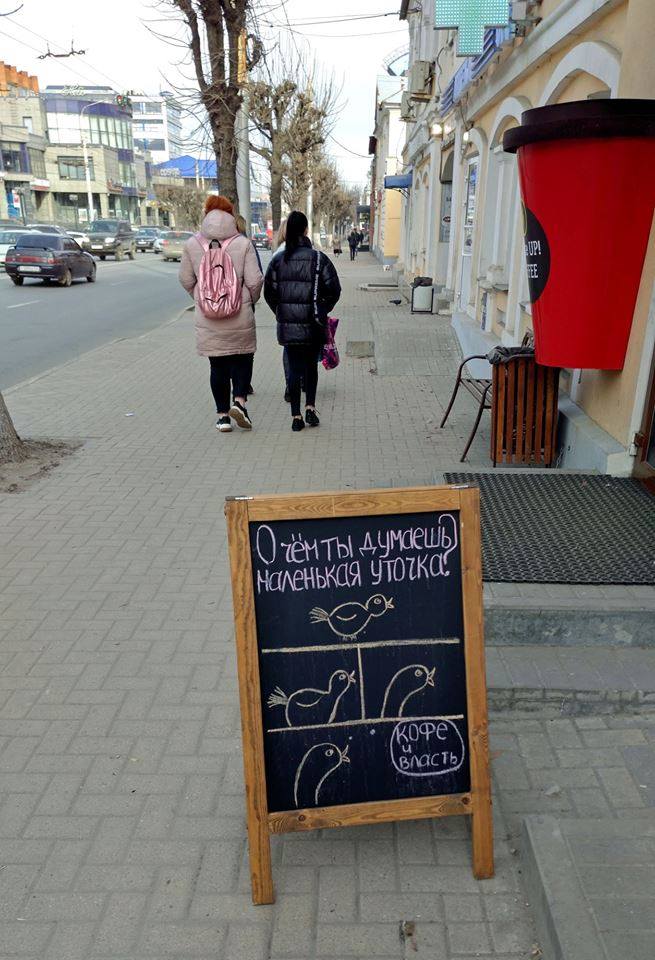 О чём ты думаешь,
маленькая уточка?
кофе
и
власть
UP!